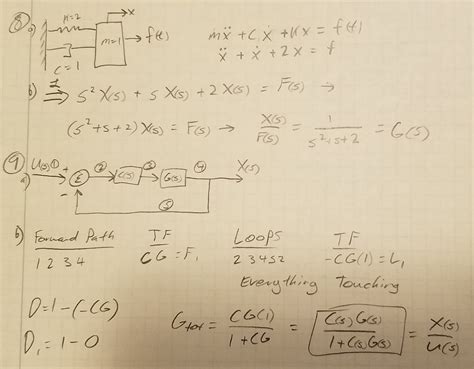 8) a) K=2 → x
m=1 → f(t)
C=1
mẍ + Cẋ + Kx = f(t)
ẍ + ẋ + 2x = f
b) ℒ ⇒ s²X(s) + sX(s) + 2X(s) = F(s) →
(s²+s+2)X(s) = F(s) → X(s)/F(s) = 1/(s²+s+2) = G(s)
9) a) U(s) ① + Σ ② C(s) ③ G(s) ④ X(s)
−
⑤
b) Forward Path TF Loops TF
1 2 3 4 CG = F₁ 2 3 4 5 2 -CG(1) = L₁
Everything Touching
D = 1-(-CG)
D₁ = 1-0
G_tot = CG(1)/(1+CG) = C(s)G(s)/(1+C(s)G(s)) = X(s)/U(s)